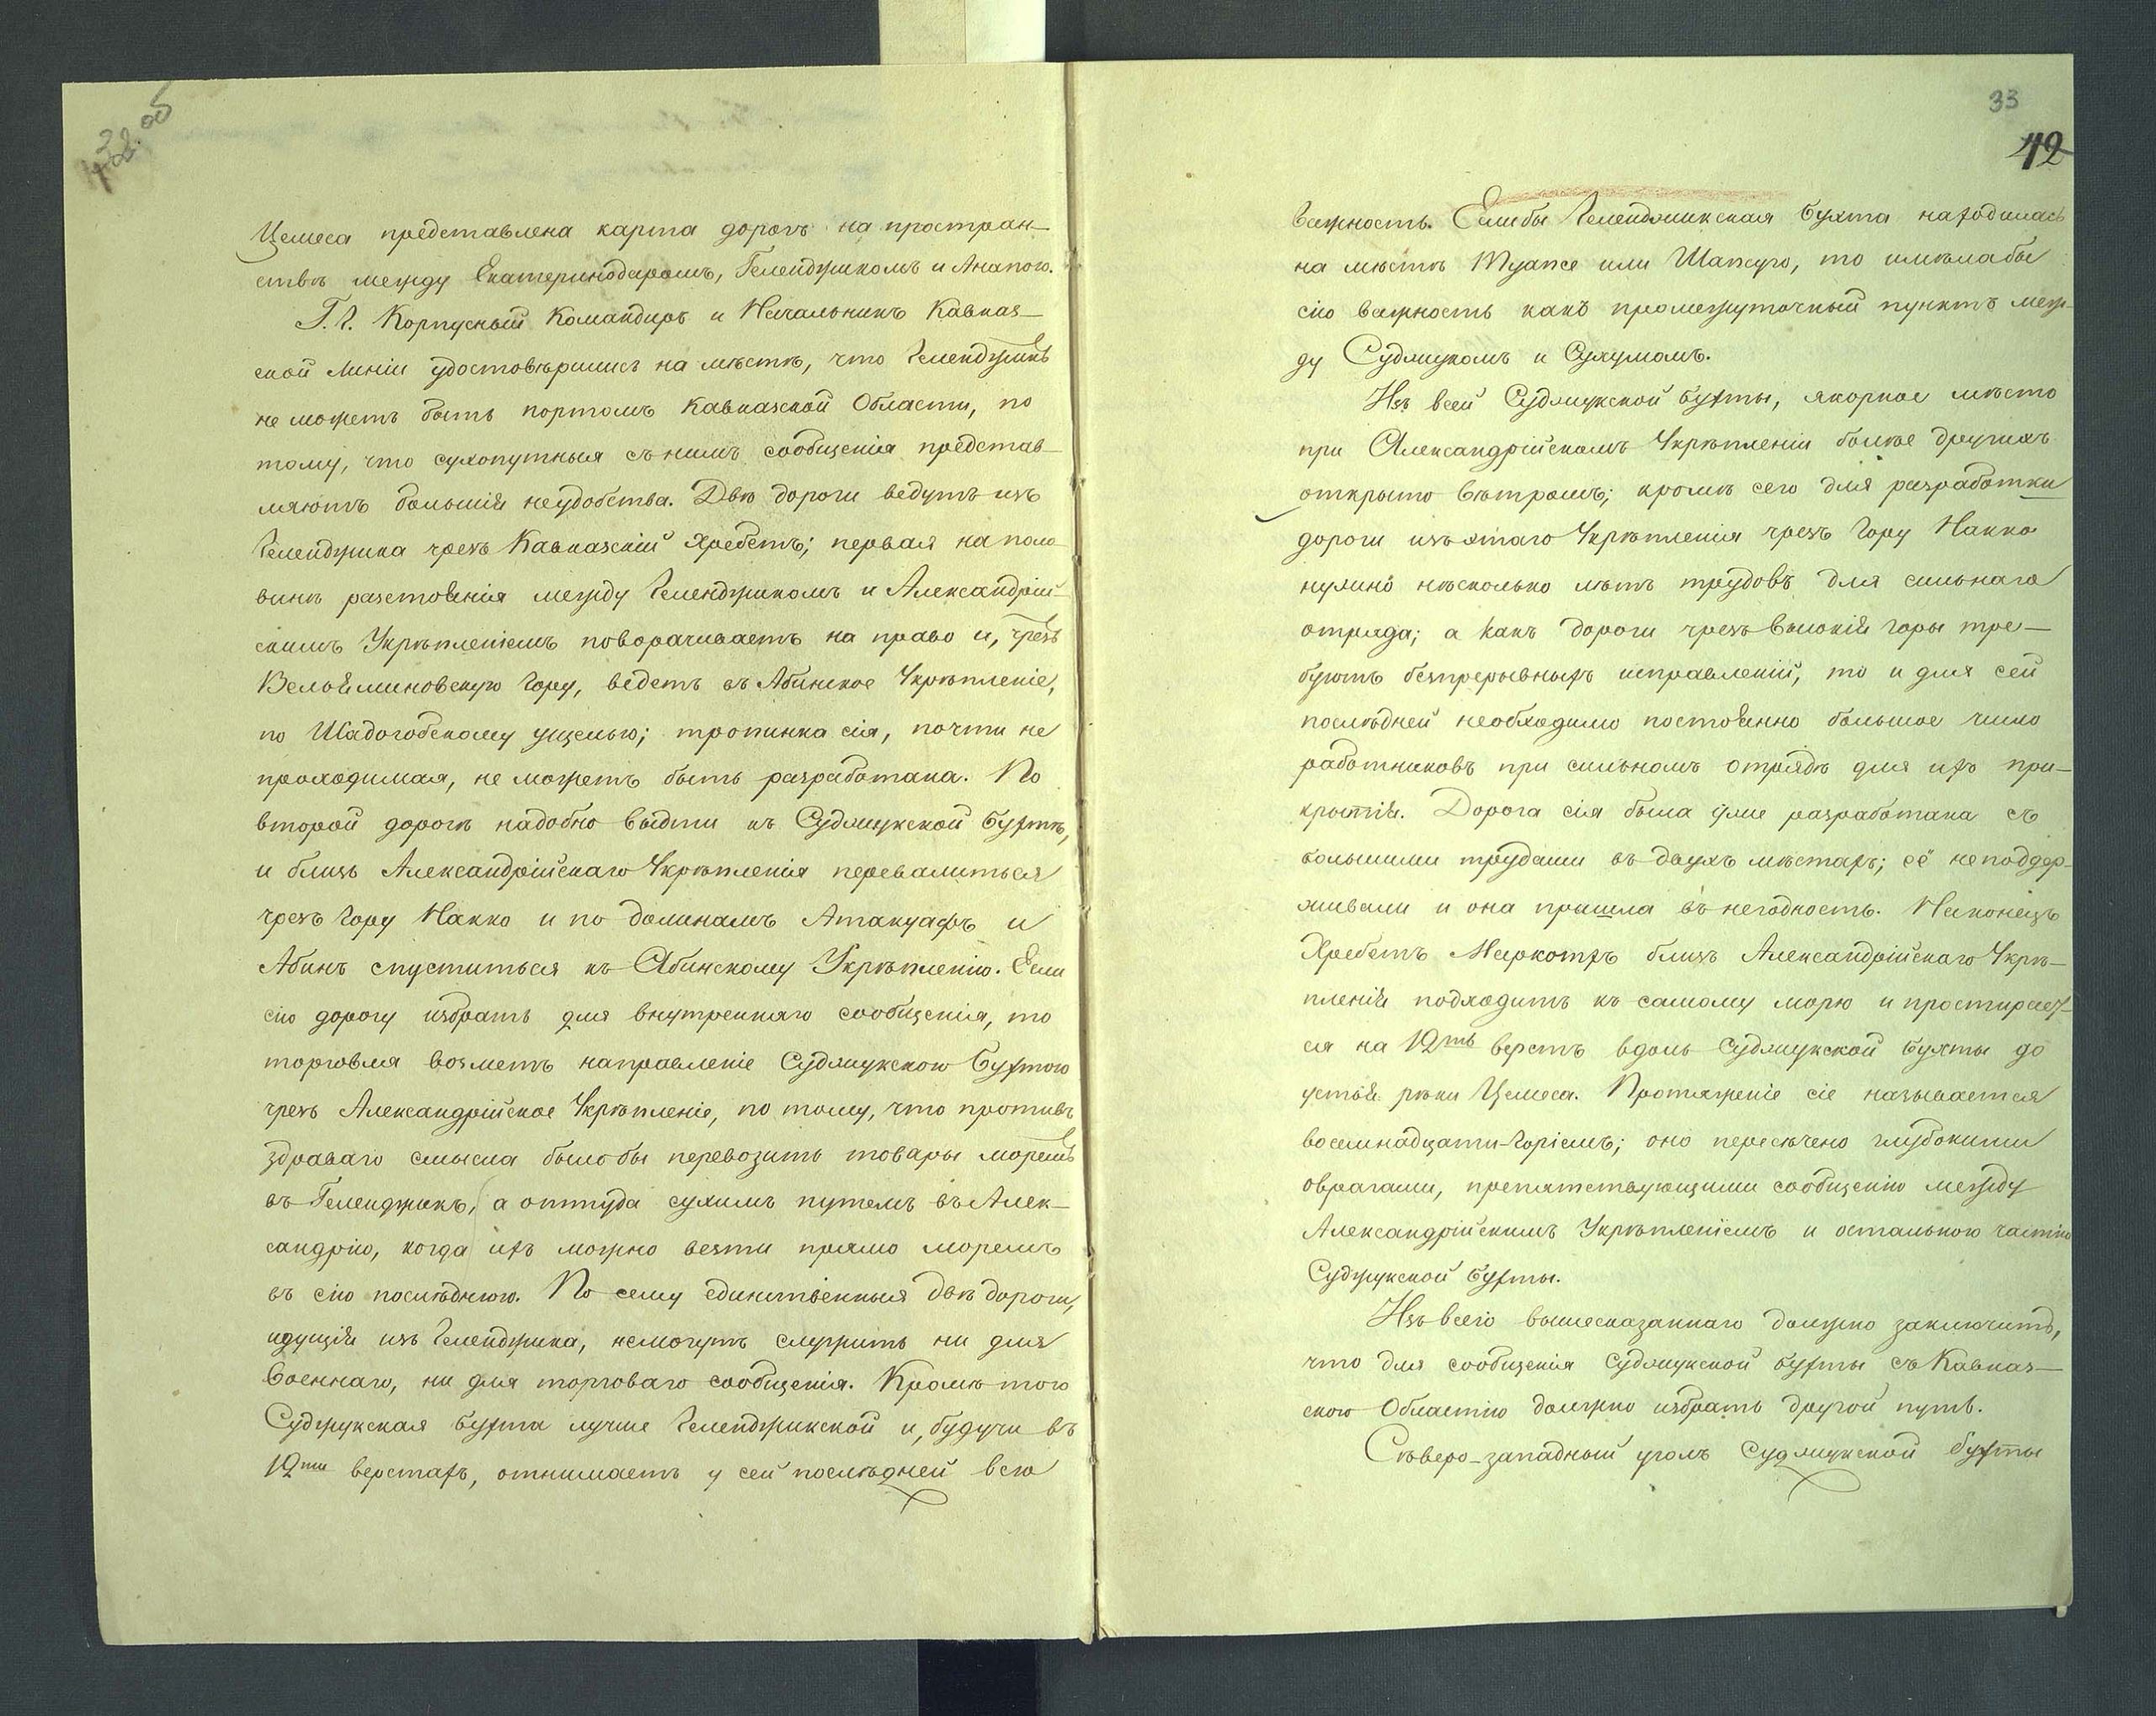 32 об
Цемеса представлена карта дорогъ на простран-
ствѣ между Екатеринодаромъ, Геленджикомъ и Анапою.
Г.г. Корпусный Командиръ и Начальникъ Кавказ-
ской Линіи удостовѣрились на мѣстѣ, что Геленджикъ
не можетъ быть портомъ Кавказской Области, по
тому, что сухопутныя съ нимъ сообщенія представ-
ляютъ большія неудобства. Двѣ дороги ведутъ изъ
Геленджика чрезъ Кавказскій Хребетъ; первая на поло-
винѣ разстоянія между Геленджикомъ и Александрій-
скимъ Укрѣпленіемъ поворачиваетъ на право и, чрезъ
Вельяминовскую Гору, ведетъ въ Абинское Укрѣпленіе,
по Шадогобскому ущелью; тропинка сія, почти не
проходимая, не можетъ быть разработана. По
второй дорогѣ надобно выдти къ Суджукской бухтѣ,
и близь Александрійскаго Укрѣпленія перевалиться
чрезъ Гору Накко и по долинамъ Атакуафъ и
Абинъ спуститься къ Абинскому Укрѣпленію. Если
сію дорогу избрать для внутренняго сообщенія, то
торговля возметъ направленіе Суджукскою Бухтою
чрезъ Александрійское Укрѣпленіе, по тому, что противъ
здраваго смысла было бы перевозить товары моремъ
въ Геленджикъ, а оттуда сухимъ путемъ въ Алек-
сандрію, когда ихъ можно везти прямо моремъ
въ сію послѣднюю. По сему единственныя двѣ дороги,
идущія изъ Геленджика, не могутъ служить ни для
Военнаго, ни для торговаго сообщенія. Кромѣ того
Суджукская Бухта лучше Геленджикской и, будучи въ
12ти верстахъ, отнимаетъ у сей послѣдней всю
33
42
важность. Если бы Геленджикская бухта находилась
на мѣстѣ Туапсе или Шапсуго, то имѣла бы
сію важность какъ промежуточный пунктъ меж-
ду Суджукомъ и Сухумомъ.
Изъ всей Суджукской бухты, якорное мѣсто
при Александрійскомъ Укрѣпленіи болѣе другихъ
открыто вѣтрамъ; кромѣ сего для разработки
дороги изъ этаго Укрѣпленія чрезъ Гору Накко
нужно нѣсколько лѣтъ трудовъ для сильнаго
отряда; а какъ дороги чрезъ высокія горы тре-
буютъ безпрерывныхъ исправленій, то и для сей
послѣдней необходимо постоянно большое число
работниковъ при сильномъ отрядѣ для ихъ при-
крытія. Дорога сія была уже разработана съ
большими трудами въ двухъ мѣстахъ; её не поддер-
живали и она пришла въ негодность. Наконецъ
Хребетъ Маркотхъ близь Александрійскаго Укрѣ-
пленія подходитъ къ самому морю и простирает-
ся на 12ть верстъ вдоль Суджукской бухты до
устья рѣки Цемеса. Протяженіе сіе называется
восемнадцати-горіемъ; оно пересѣчено глубокими
оврагами, препятствующими сообщенію между
Александрійскимъ Укрѣпленіемъ и остальною частію
Суджукской бухты.
Изъ всего вышесказаннаго должно заключить,
что для сообщенія Суджукской бухты съ Кавказ-
скою Областію должно избрать другой путь.
Сѣверо-западный уголъ Суджукской бухты